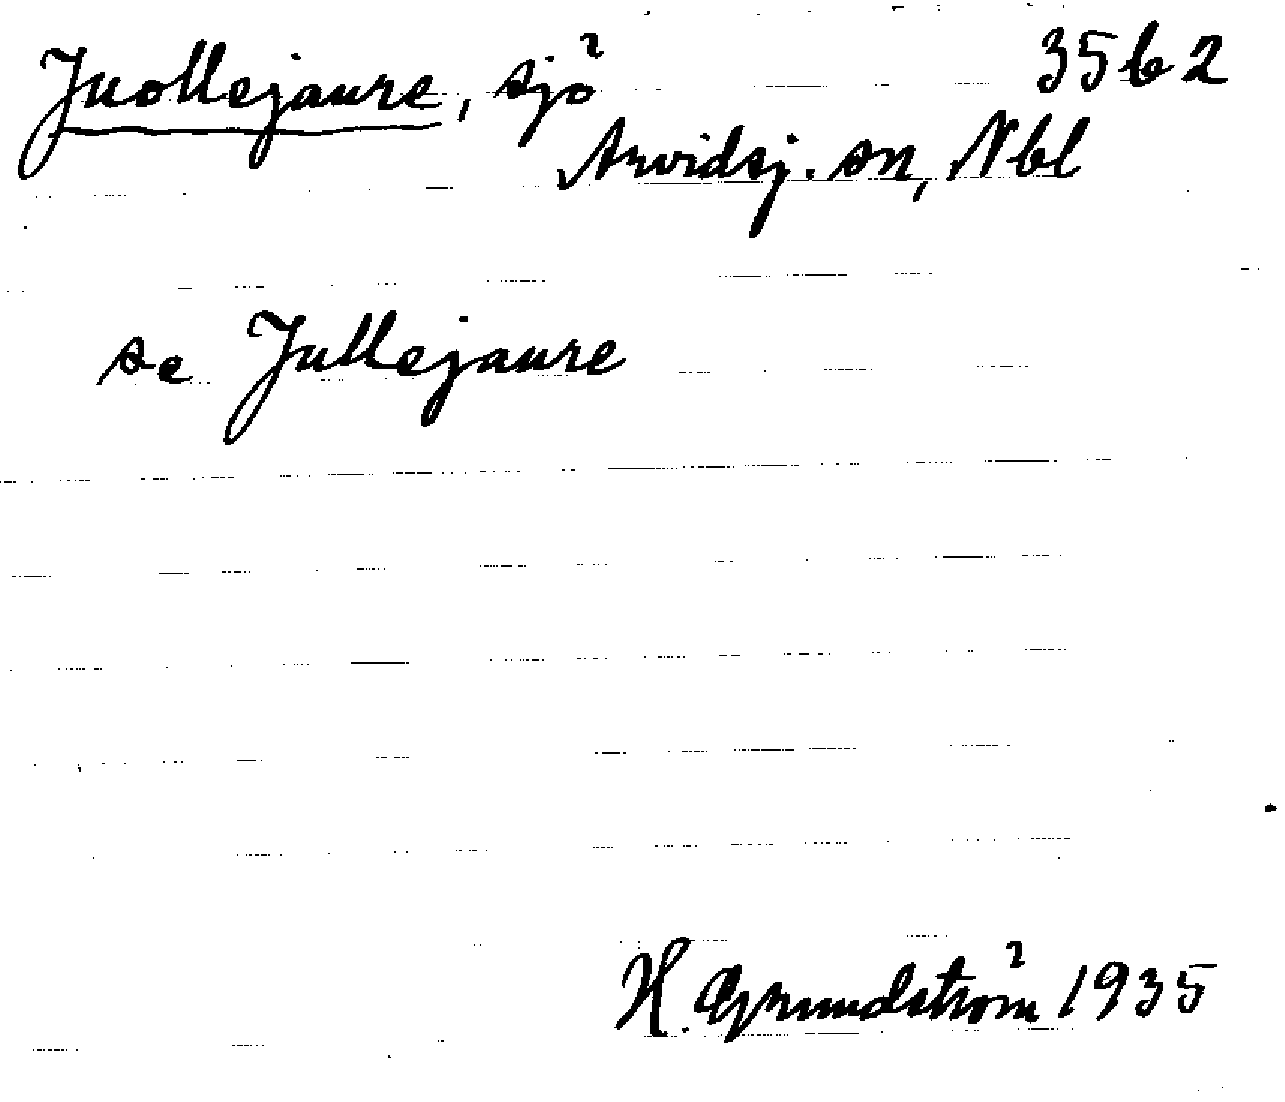 Juollejaure, sjö 35 b 2
Arvidsj. sn, Nbl
se Jullejaure
H. Grundström 1935